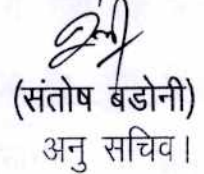 (संतोष बडोनी)
अनु सचिव।